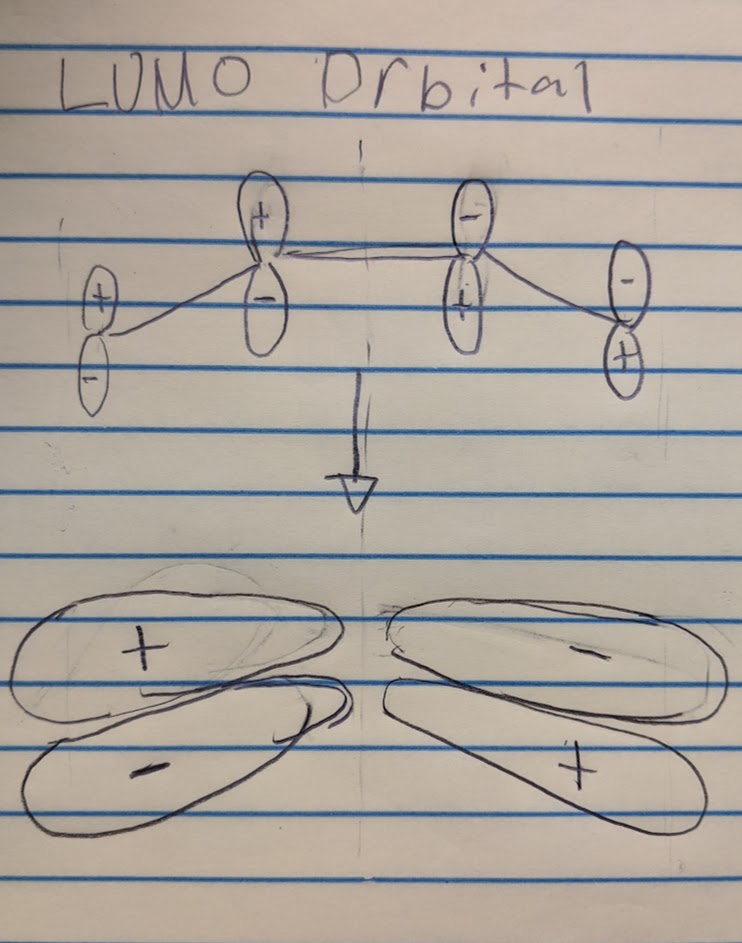 LUMO Orbital
+ -
+ - - +
- +
+ -
- +